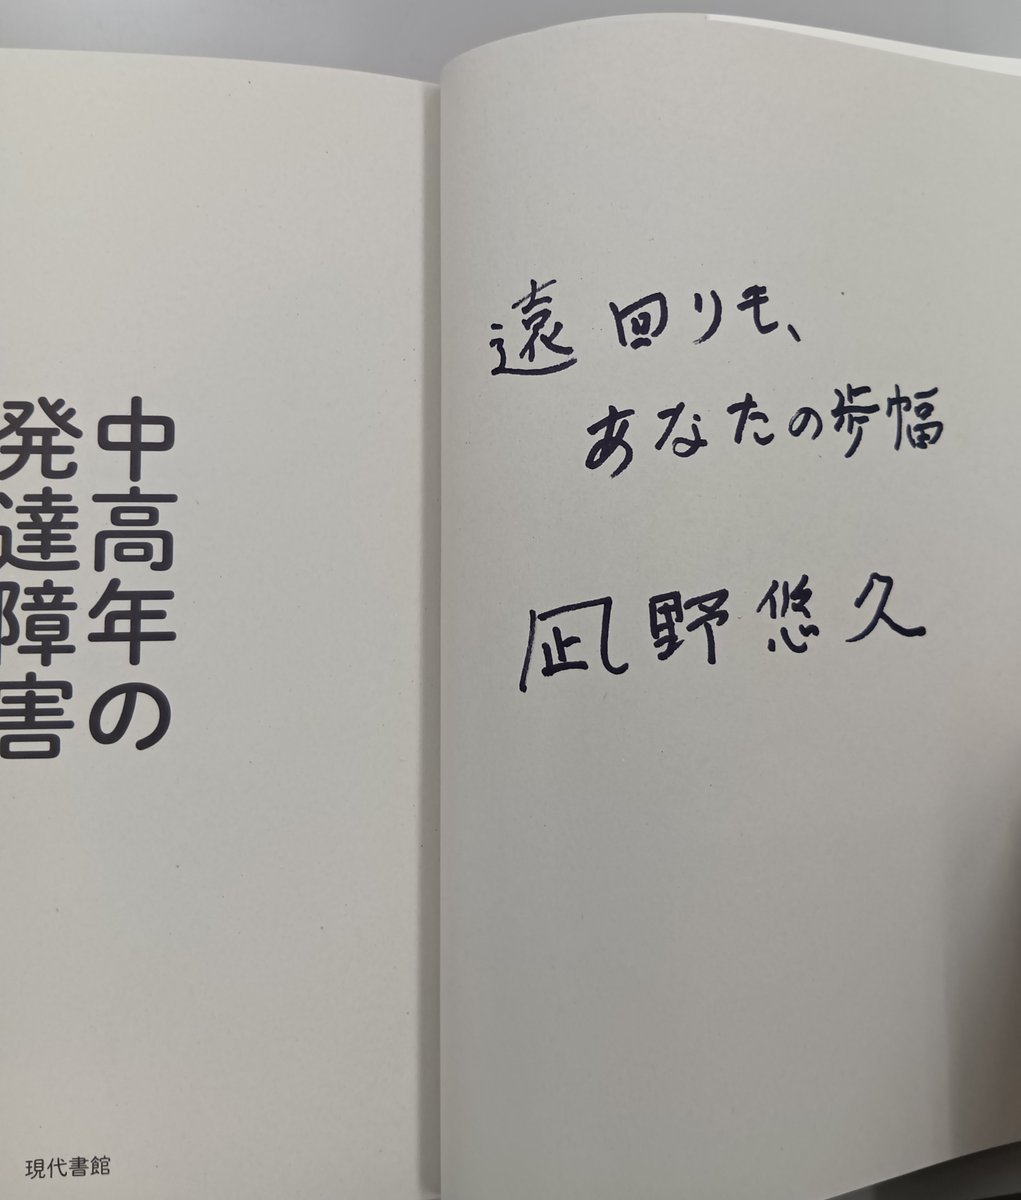 遠回りも、
あなたの歩幅
凪野悠久
中高年の
発達障害
現代書館